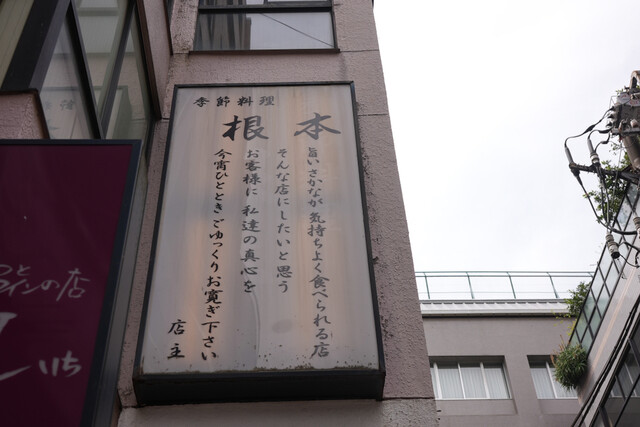 季節料理
根本
旨いさかなが気持ちよく食べられる店
そんな店にしたいと思う
お客様に私達の真心を
今宵ひとときごゆっくりお寛ぎ下さい
店主
インの店
いち